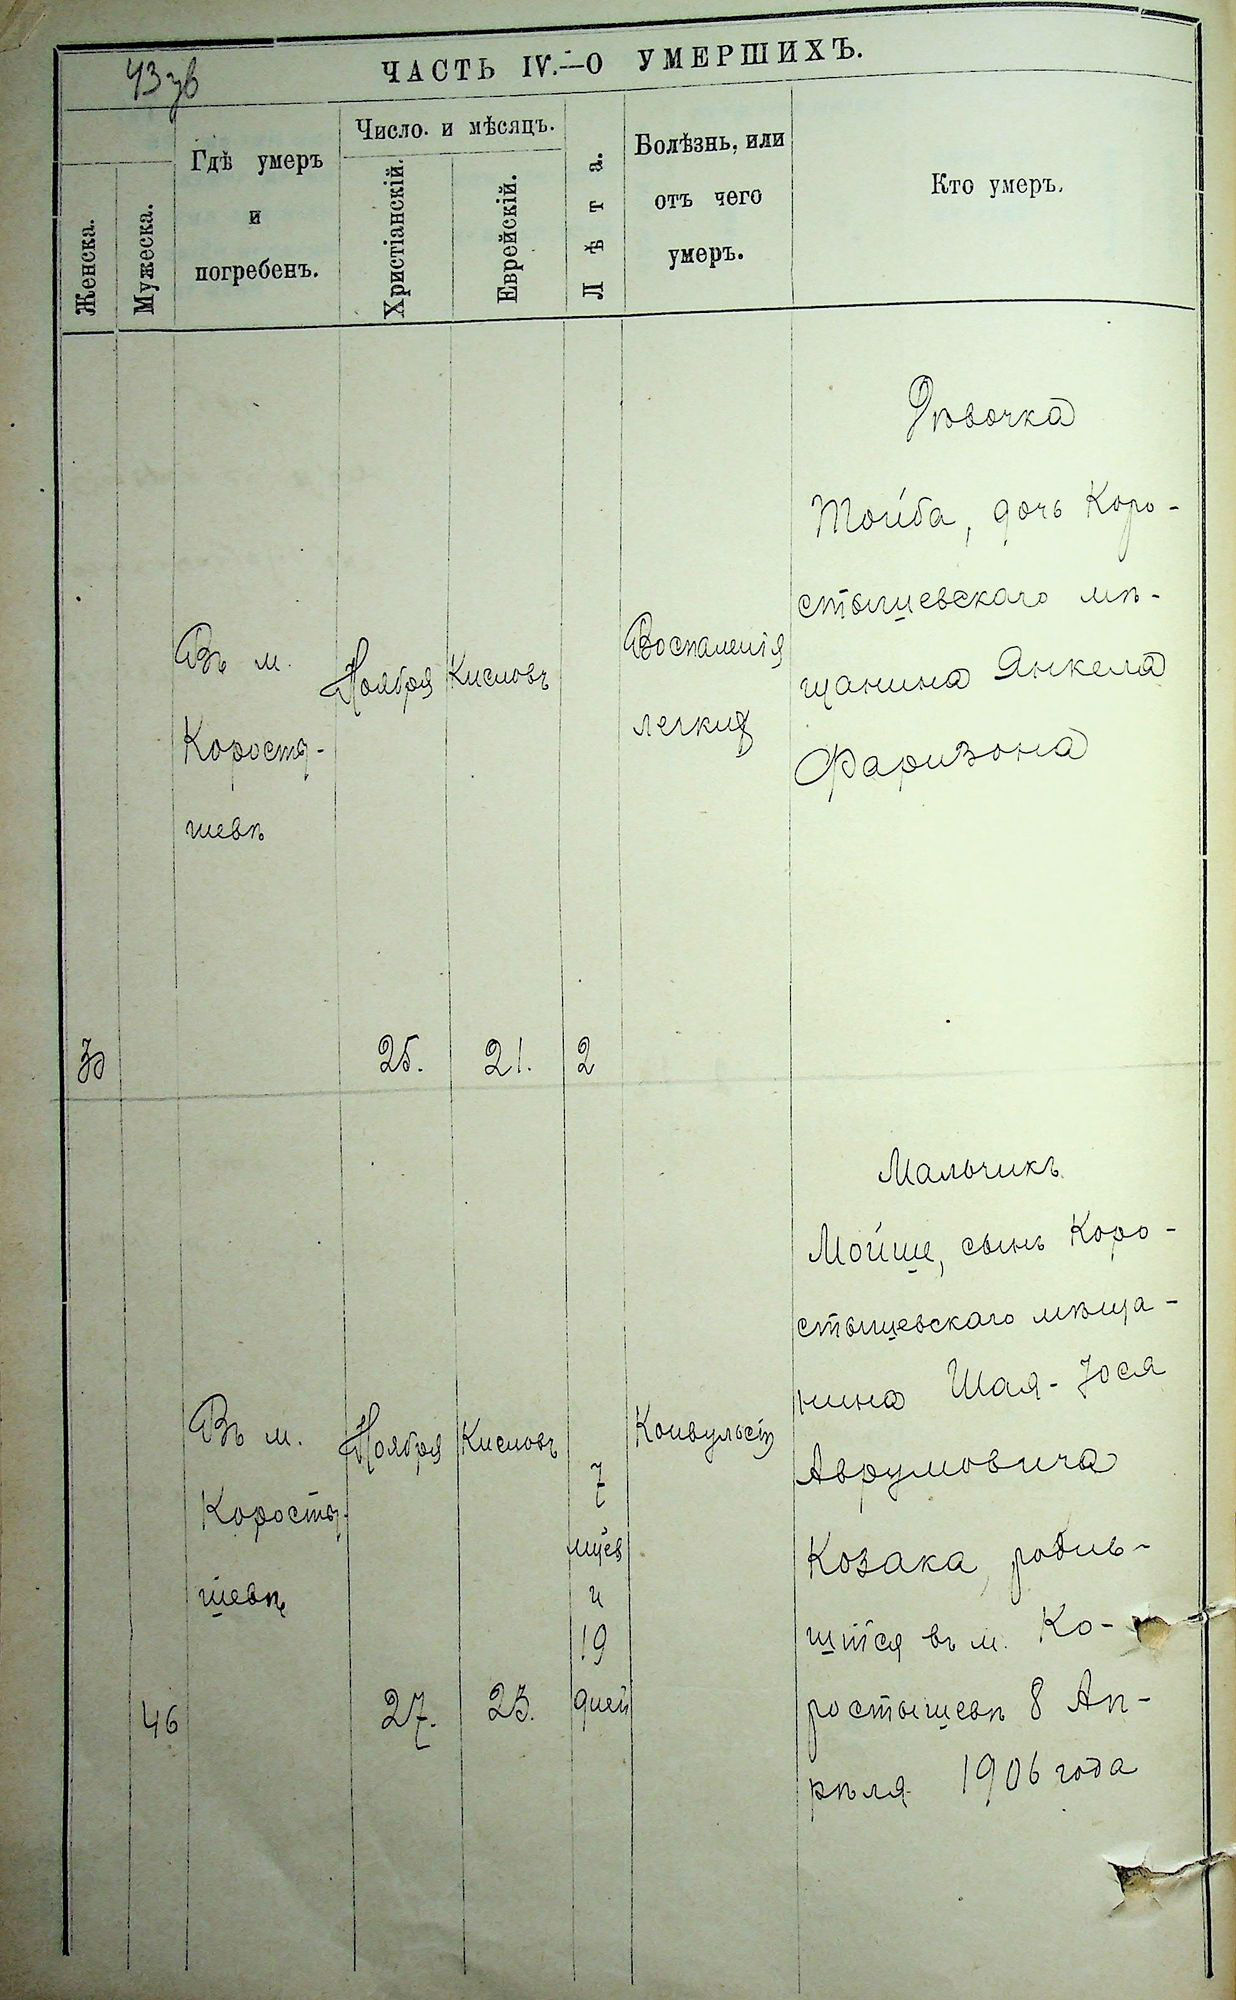 43 зв
ЧАСТЬ IV.—О УМЕРШИХЪ.
Женска.
Мужеска.
Гдѣ умеръ
и
погребенъ.
Число. и мѣсяцъ.
Христіанскій.
Еврейскій.
Лѣта.
Болѣзнь, или
отъ чего
умеръ.
Кто умеръ.
Въ м.
Коросты-
шевѣ
Ноября
25.
Кисловъ
21.
2
Воспаленія
легкихъ
Дѣвочка
Тойба, дочь Коро-
стышевскаго мѣ-
щанина Янкеля
Фаризона
46
Въ м.
Коросты-
шевѣ
Ноября
27.
Кисловъ
23.
7
мцев
и
19
дней
Конвульсіи
Мальчикъ
Мойше, сынъ Коро-
стышевскаго мѣща-
нина Шая-Іося
Аврумовича
Козака, родив-
шійся въ м. Ко-
ростышевѣ 8 Ап-
рѣля 1906 года